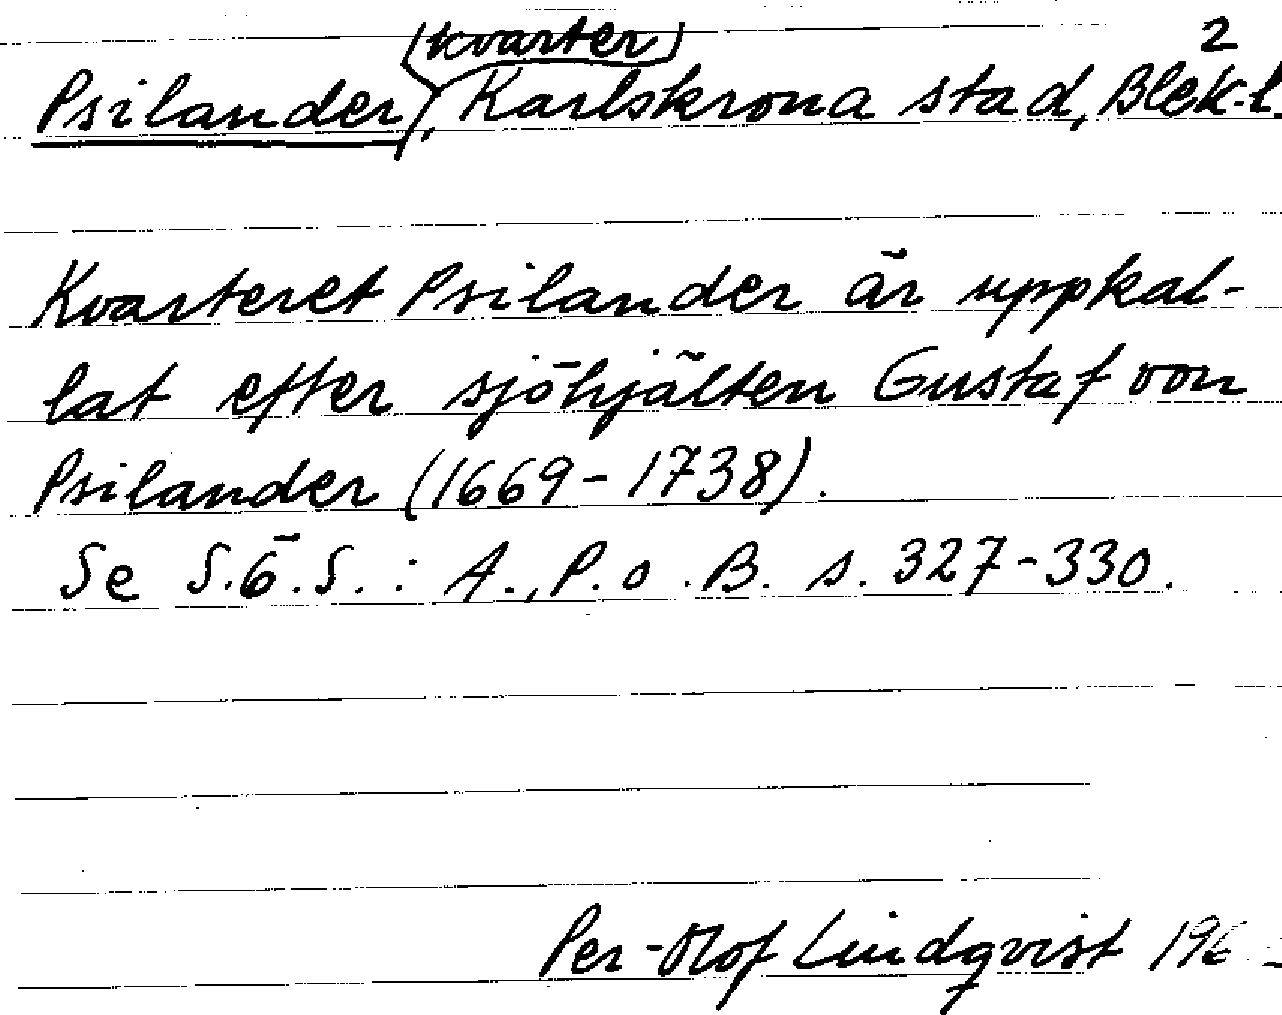 2
Psilander (kvarter), Karlskrona stad, Blek. l.
Kvarteret Psilander är uppkal-
lat efter sjöhjälten Gustaf von
Psilander (1669-1738).
Se S.Ö.S.: A., P. o. B. s. 327-330.
Per-Olof Lindqvist